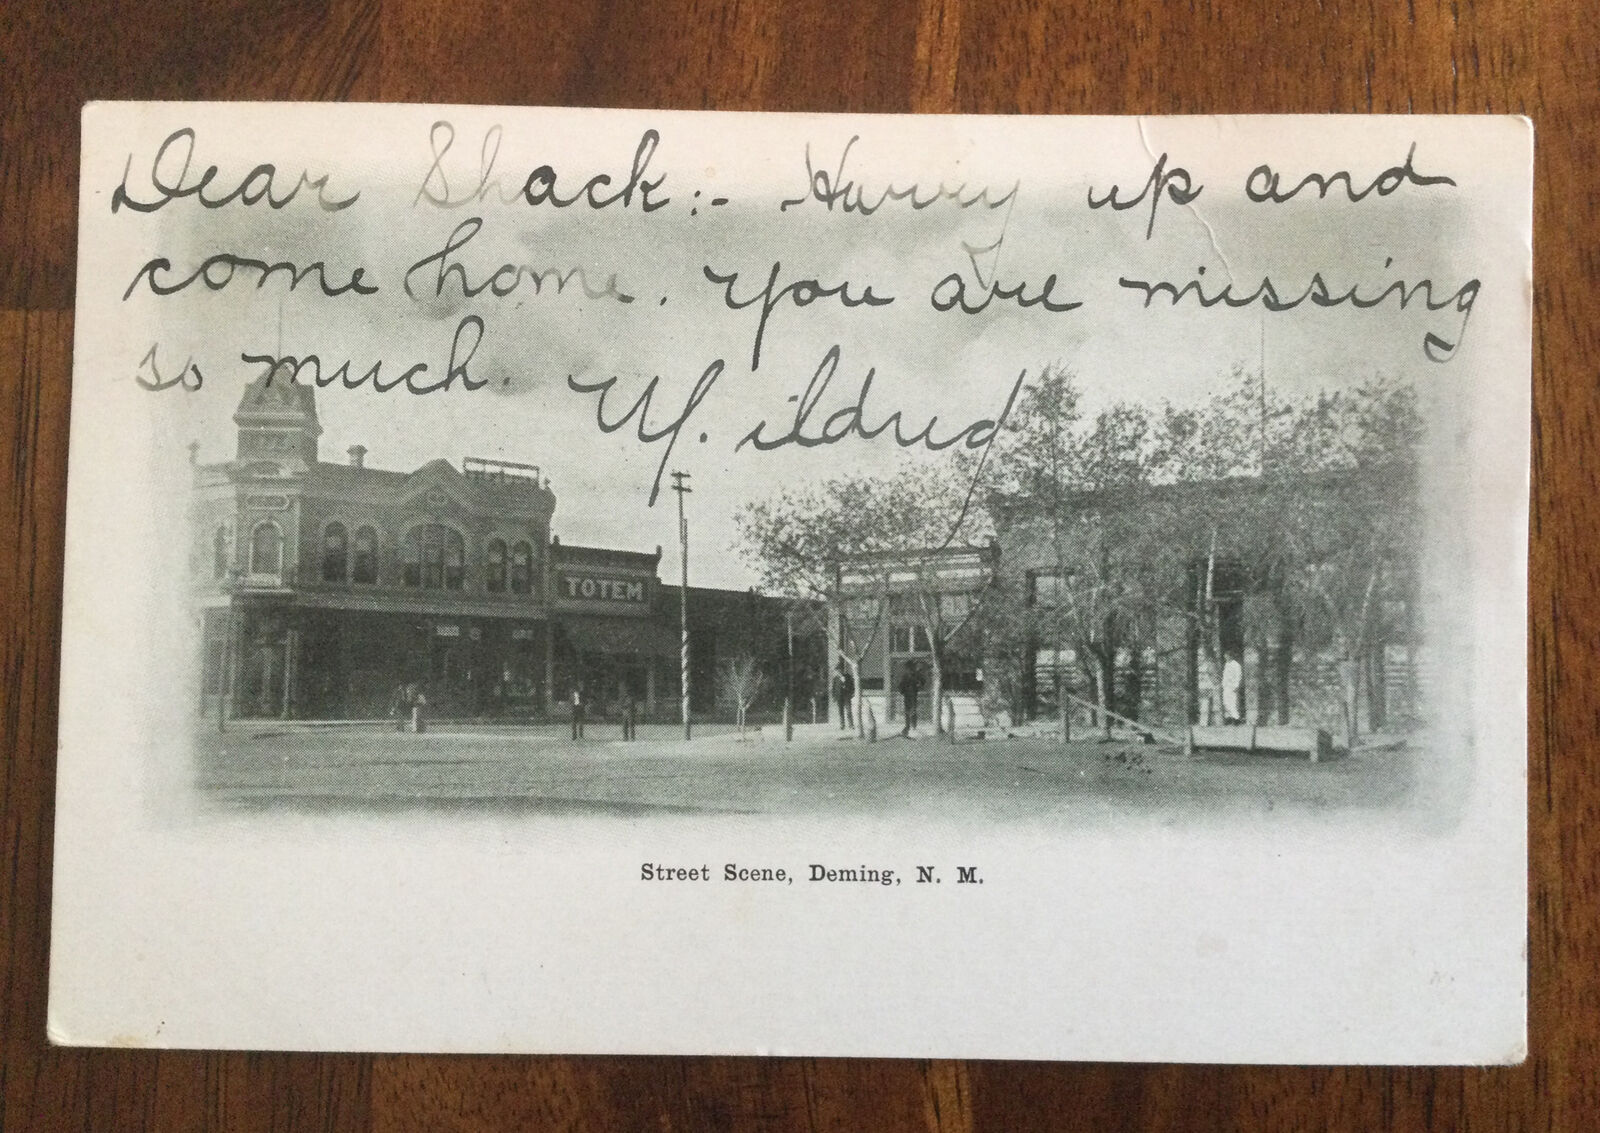 Dear Shack:- Hurry up and
come home. You are missing
so much. Mildred
TOTEM
Street Scene, Deming, N. M.